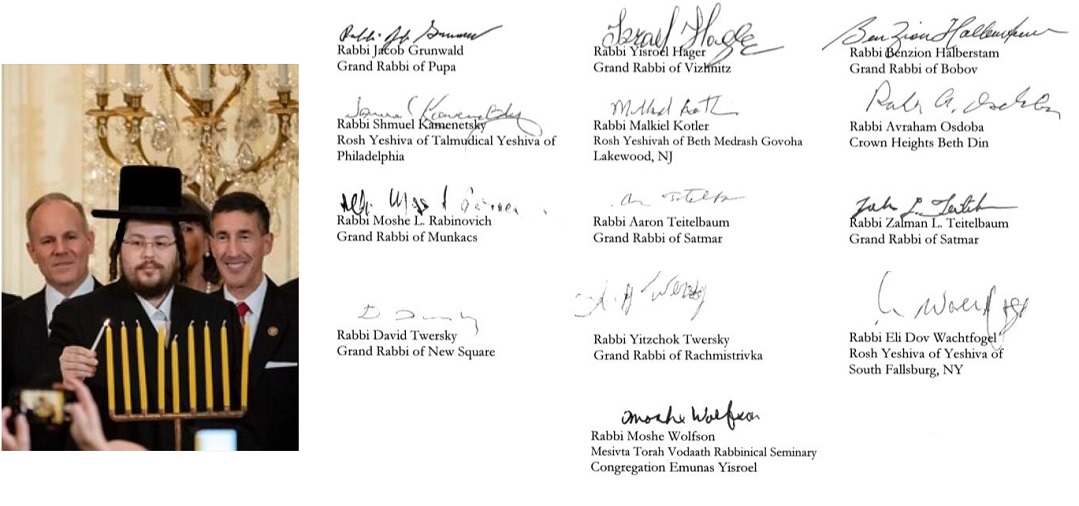 Rabbi Jacob Grunwald
Grand Rabbi of Pupa
Israel Hager
Rabbi Yisroel Hager
Grand Rabbi of Vizhnitz
Ben Zion Halberstam
Rabbi Benzion Halberstam
Grand Rabbi of Bobov
Rabbi Shmuel Kamenetsky
Rosh Yeshiva of Talmudical Yeshiva of
Philadelphia
Rabbi Malkiel Kotler
Rosh Yeshivah of Beth Medrash Govoha
Lakewood, NJ
Rabbi Avraham Osdoba
Crown Heights Beth Din
Rabbi Moshe L. Rabinovich
Grand Rabbi of Munkacs
Rabbi Aaron Teitelbaum
Grand Rabbi of Satmar
Rabbi Zalman L. Teitelbaum
Grand Rabbi of Satmar
Rabbi David Twersky
Grand Rabbi of New Square
Rabbi Yitzchok Twersky
Grand Rabbi of Rachmistrivka
Rabbi Eli Dov Wachtfogel
Rosh Yeshiva of Yeshiva of
South Fallsburg, NY
Moshe Wolfson
Rabbi Moshe Wolfson
Mesivta Torah Vodaath Rabbinical Seminary
Congregation Emunas Yisroel